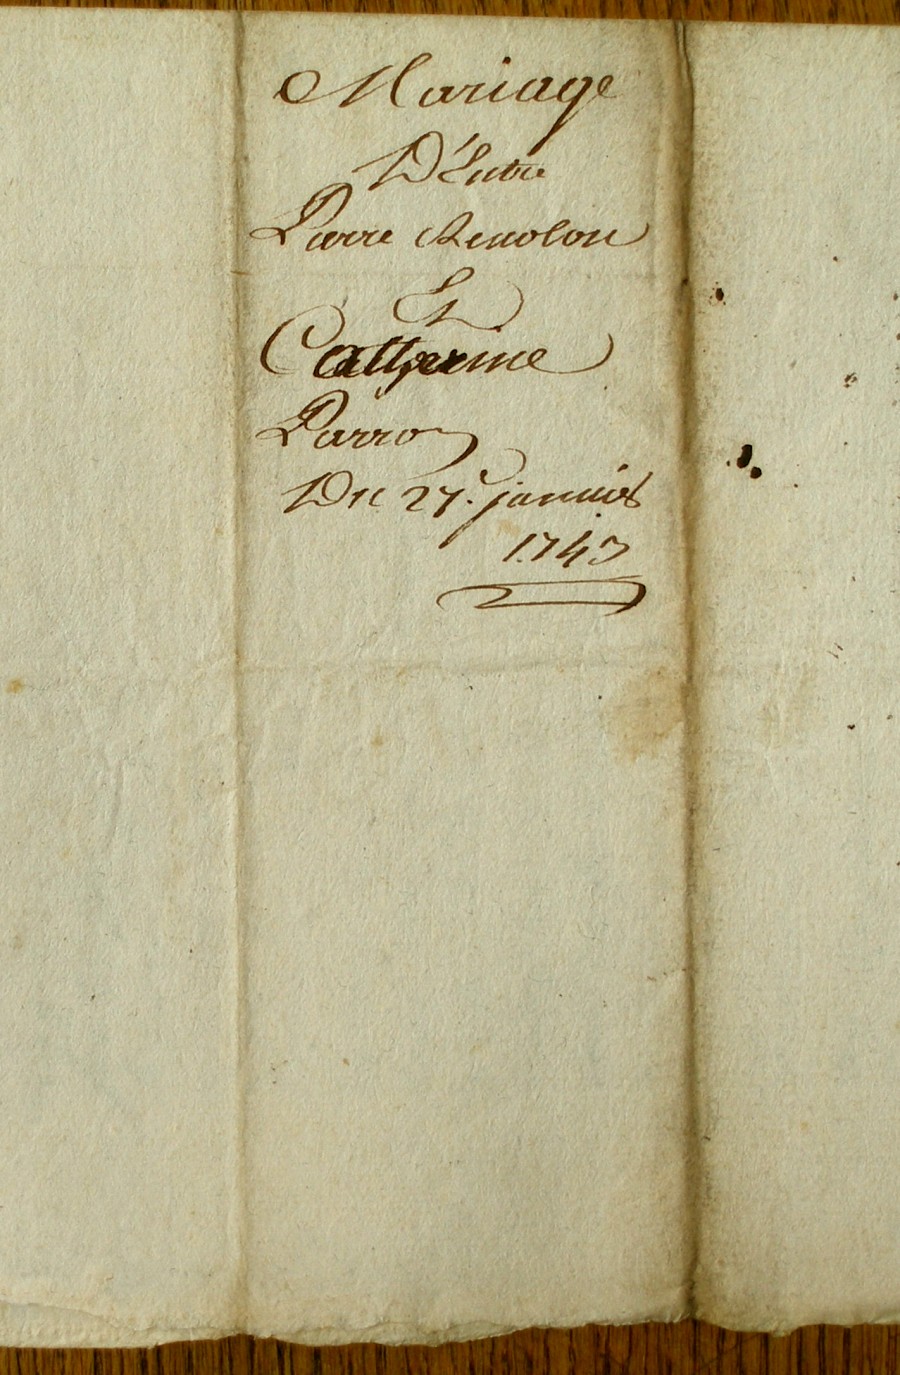 Mariage
D'Entre
Pierre Renolon
Et
Catherine
Parron
Du 27.e janvier
1743